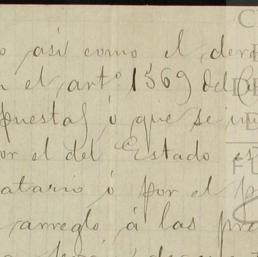 o así como el dere
n el artº 1569 del C
puestas ó que se in
or el del Estado es
atario ó por el
arreglo á las pr